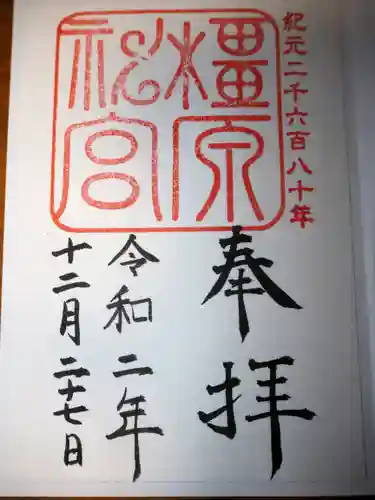 紀元二千六百八十年
橿原神宮
奉拝
令和二年
十二月二十七日